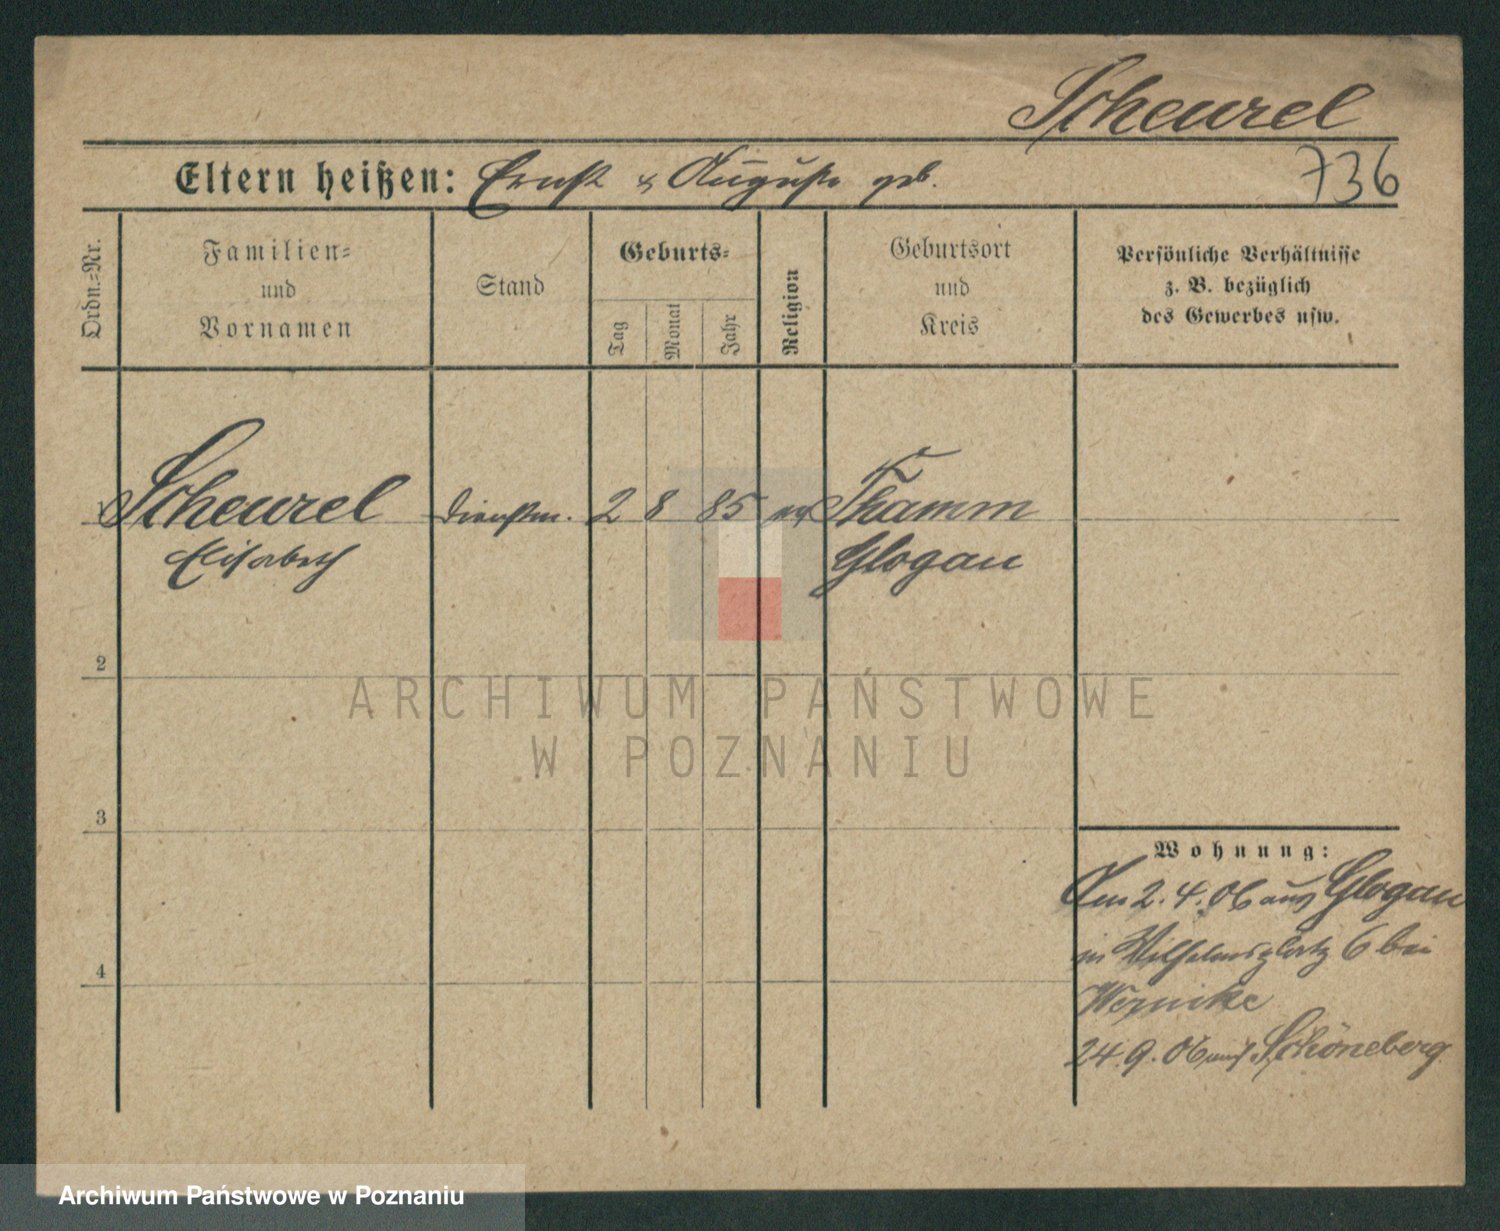 Scheurel
Eltern heißen: Ernst & Auguste geb.
736
Ordn.-Nr.
Familien-
und
Vornamen
Stand
Geburts-
Tag
Monat
Jahr
Religion
Geburtsort
und
Kreis
Persönliche Verhältnisse
z. B. bezüglich
des Gewerbes usw.
Scheurel Dienstm. 2 8 85 ev Thamm
Elisabeth Glogau
2
ARCHIWUM PAŃSTWOWE
W POZNANIU
3
Wohnung:
Am 2.4.06 aus Glogau
in Wilhelmsplatz 6 bei
Wernicke
4
24.9.06 auf Schöneberg
Archiwum Państwowe w Poznaniu